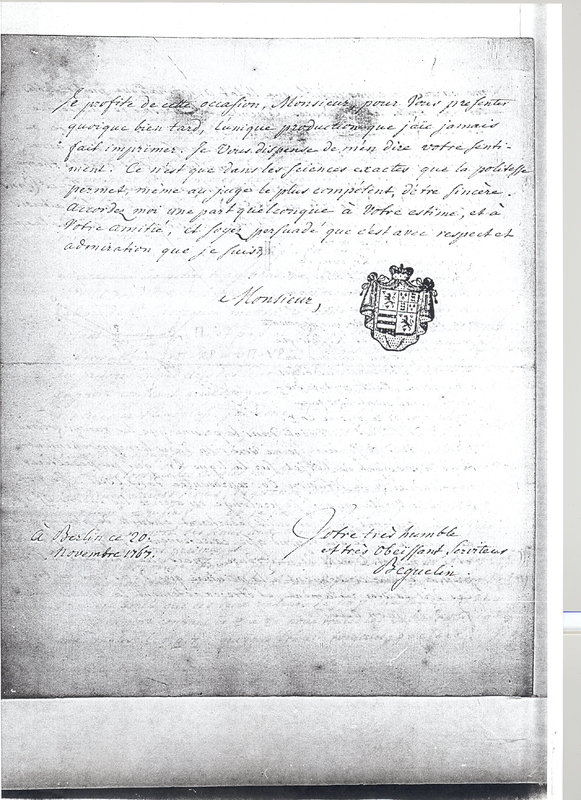 Je profite de cette occasion, Monsieur, pour Vous presenter
quoique bien tard, l'unique production que j'aïe jamais
fait imprimer. Je Vous dispense de m'en dire votre senti-
ment. Ce n'est que dans les sciences exactes que la politesse
permet, même au juge le plus compétent, d'être sincère.
Accordez moi une part quelconque à Votre estime, et à
Votre amitié, et soyez persuadé que c'est avec respect et
admiration que je suis,
Monsieur,
à Berlin ce 20.
Novembre 1767.
Votre très humble
et très Obeissant Serviteur
Béguelin